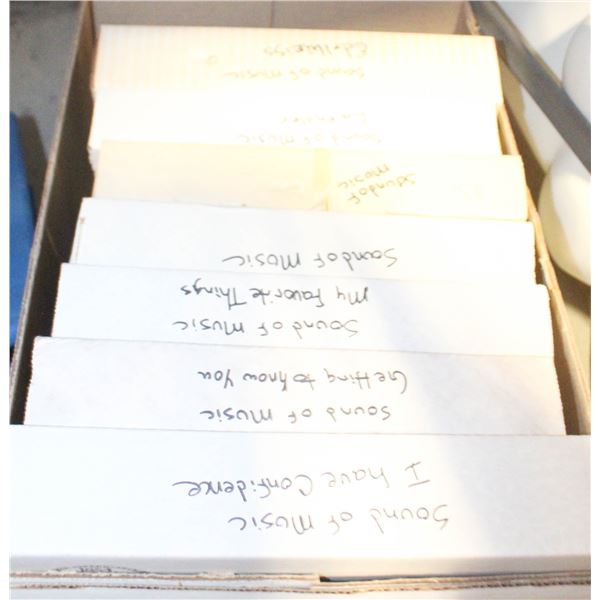 Sound of Music
I have Confidence
Sound of Music
Getting to know You
Sound of Music
My Favorite Things
Sound of Music
Sound of
Music
Sound of Music
Sound of Music
Edelweiss